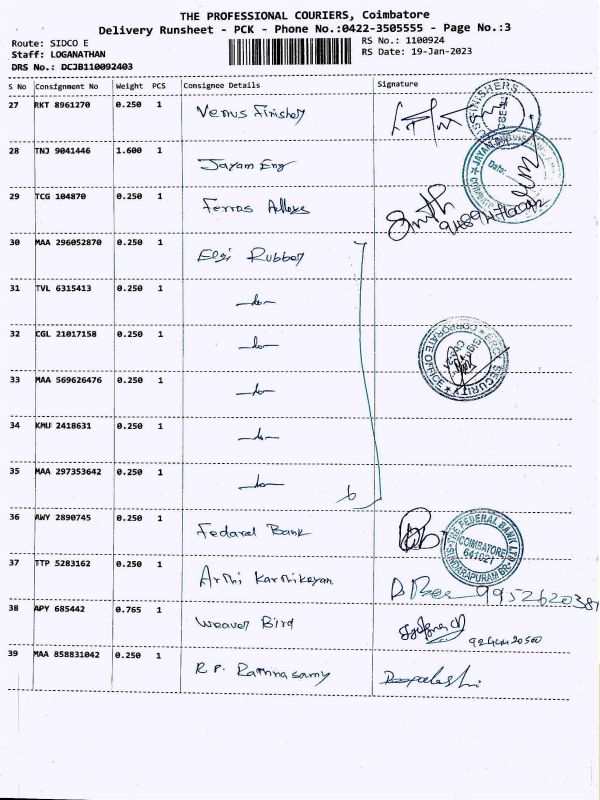 THE PROFESSIONAL COURIERS, Coimbatore
Delivery Runsheet - PCK - Phone No.:0422-3505555 - Page No.:3
Route: SIDCO E
RS No.: 1100924
Staff: LOGANATHAN
RS Date: 19-Jan-2023
DRS No.: DCJB110092403
S No Consignment No Weight PCS Consignee Details Signature
27 RKT 8961270 0.250 1 Venus Finisher
28 TNJ 9041446 1.600 1 Jayam Eng
29 TCG 104870 0.250 1 Ferros Alloys
30 MAA 296052870 0.250 1 Elgi Rubber
31 TVL 6315413 0.250 1 -do-
32 CGL 21017158 0.250 1 -do-
33 MAA 569626476 0.250 1 -do-
34 KMU 2418631 0.250 1 -do-
35 MAA 297353642 0.250 1 -do-
6
36 AWY 2890745 0.250 1 Fedaral Bank
THE FEDERAL BANK LTD
COIMBATORE
641021
37 TTP 5283162 0.250 1 Arthi Karthikeyan
38 APY 685442 0.765 1 Weaver Bird
39 MAA 858831042 0.250 1 R.P. Rathnasamy